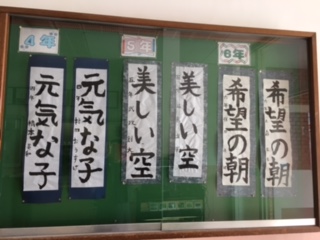 4年
5年
6年
元気な子
元気な子
美しい空
美しい空
希望の朝
希望の朝